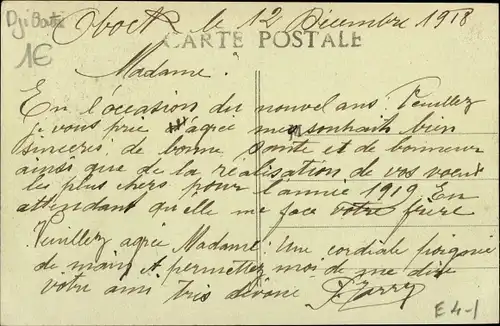 Djibouti
1€
Obock le 12 Décembre 1918
CARTE POSTALE
Madame.
En l'occasion du nouvel ans. Veuillez
je vous prie agrée mes souhait bien
sinceres de bonne santé et de bonneur
ainsi que de la réalisation de vos voeux
les plus chers pour l'année 1919 En
attendant qu'elle me face votre frère
Veuillez agrée Madame. Une cordiale poignée
de main et permettez moi de me dire
votre ami très dévoué
E4-1